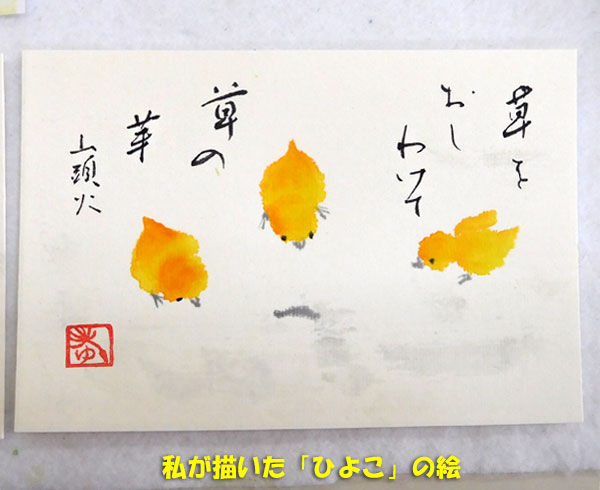 草を
おし
わけて
草の
華
山頭火
私が描いた「ひよこ」の絵